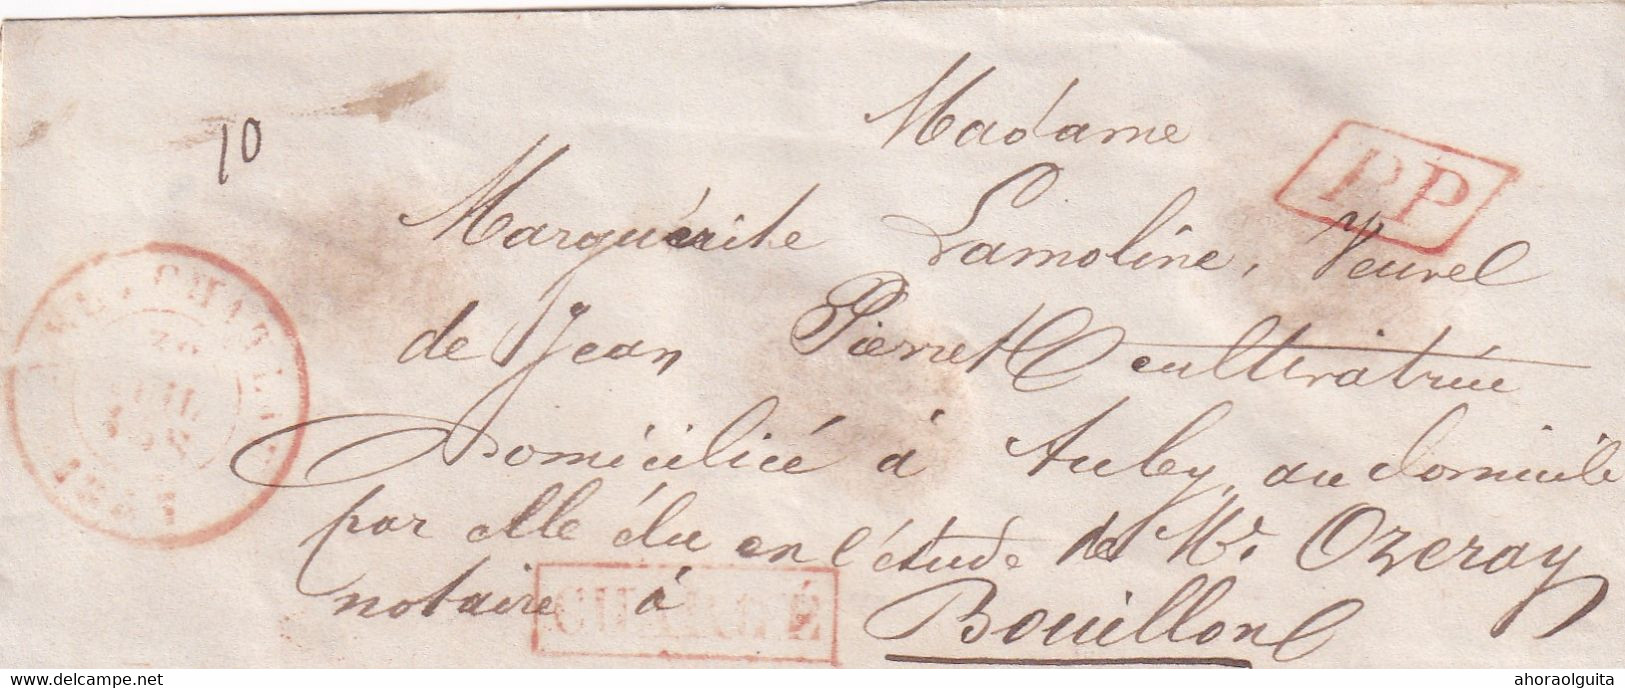 10
Madame
PP
Marguérite Lamoline, Veuve
de Jean Pierret cultivatrice
Domiciliée à Auby, au domicile
par elle élu en l'étude de Mr. Ozeray
notaire à Bouillon
CHARGÉ
www.delcampe.net
ahoraolguita